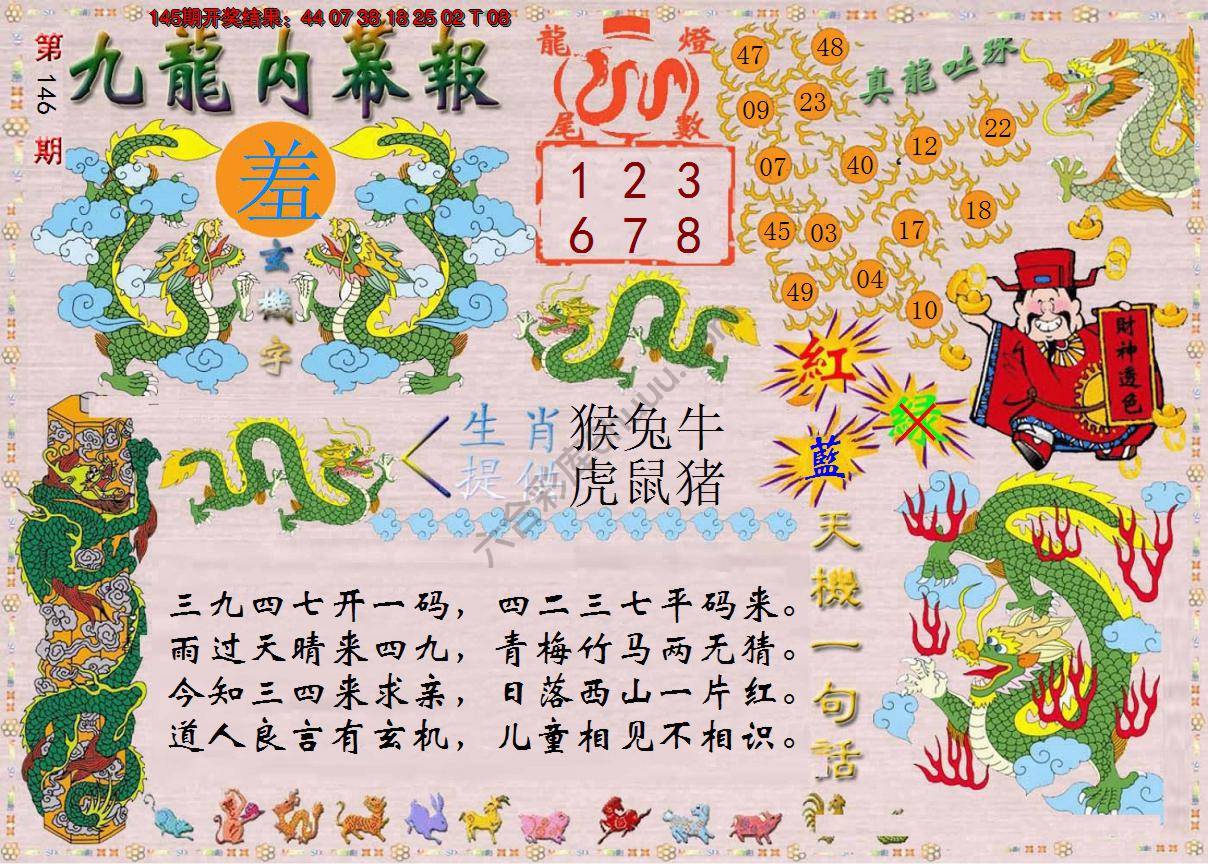 145期开奖结果：44 07 38 18 25 02 T 08
第146期
九龍内幕報
羞
玄機字
龍燈
尾數
1 2 3
6 7 8
真龍吐珠
47
48
09
23
12
22
07
40
45
03
17
18
49
04
10
財神透色
紅
綠
藍
生肖 猴兔牛
提供 虎鼠猪
三九四七开一码，四二三七平码来。
雨过天晴来四九，青梅竹马两无猜。
今知三四来求亲，日落西山一片红。
道人良言有玄机，儿童相见不相识。
天機一句話